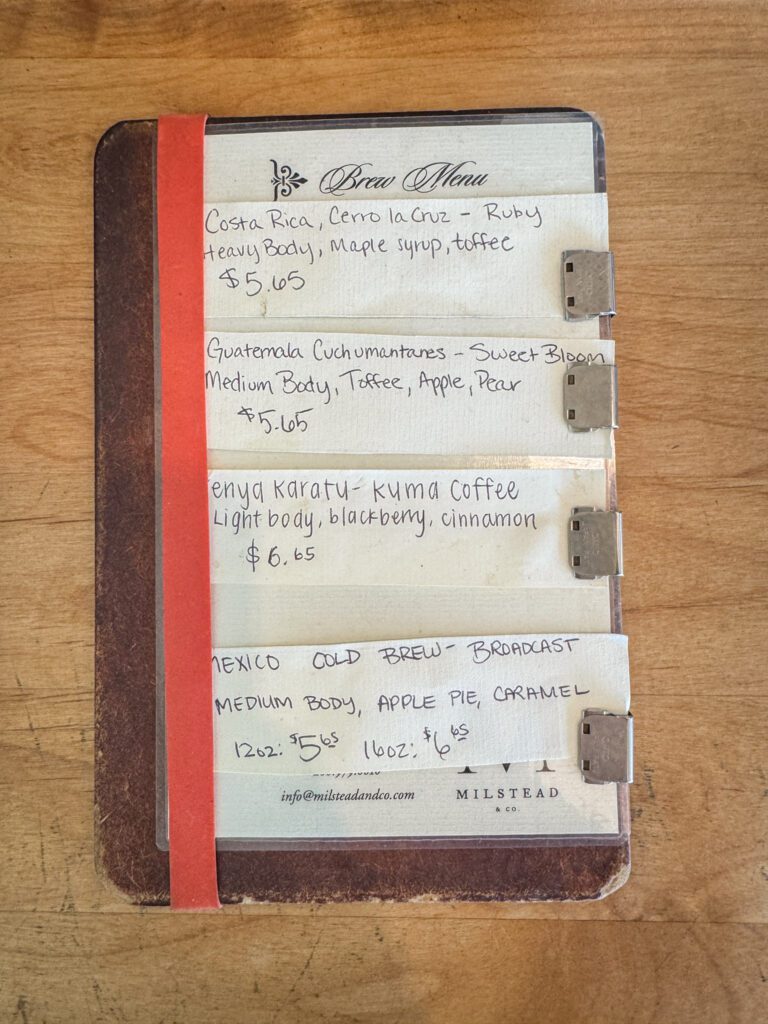 Brew Menu
Costa Rica, Cerro la Cruz - Ruby
Heavy Body, Maple syrup, toffee
$5.65
Guatemala Cuchumantanes - Sweet Bloom
Medium Body, Toffee, Apple, Pear
$5.65
enya Karatu - Kuma Coffee
Light body, blackberry, cinnamon
$6.65
MEXICO COLD BREW - BROADCAST
MEDIUM BODY, APPLE PIE, CARAMEL
12oz: $5 65 16oz: $6 65
info@milsteadandco.com
MILSTEAD
& CO.